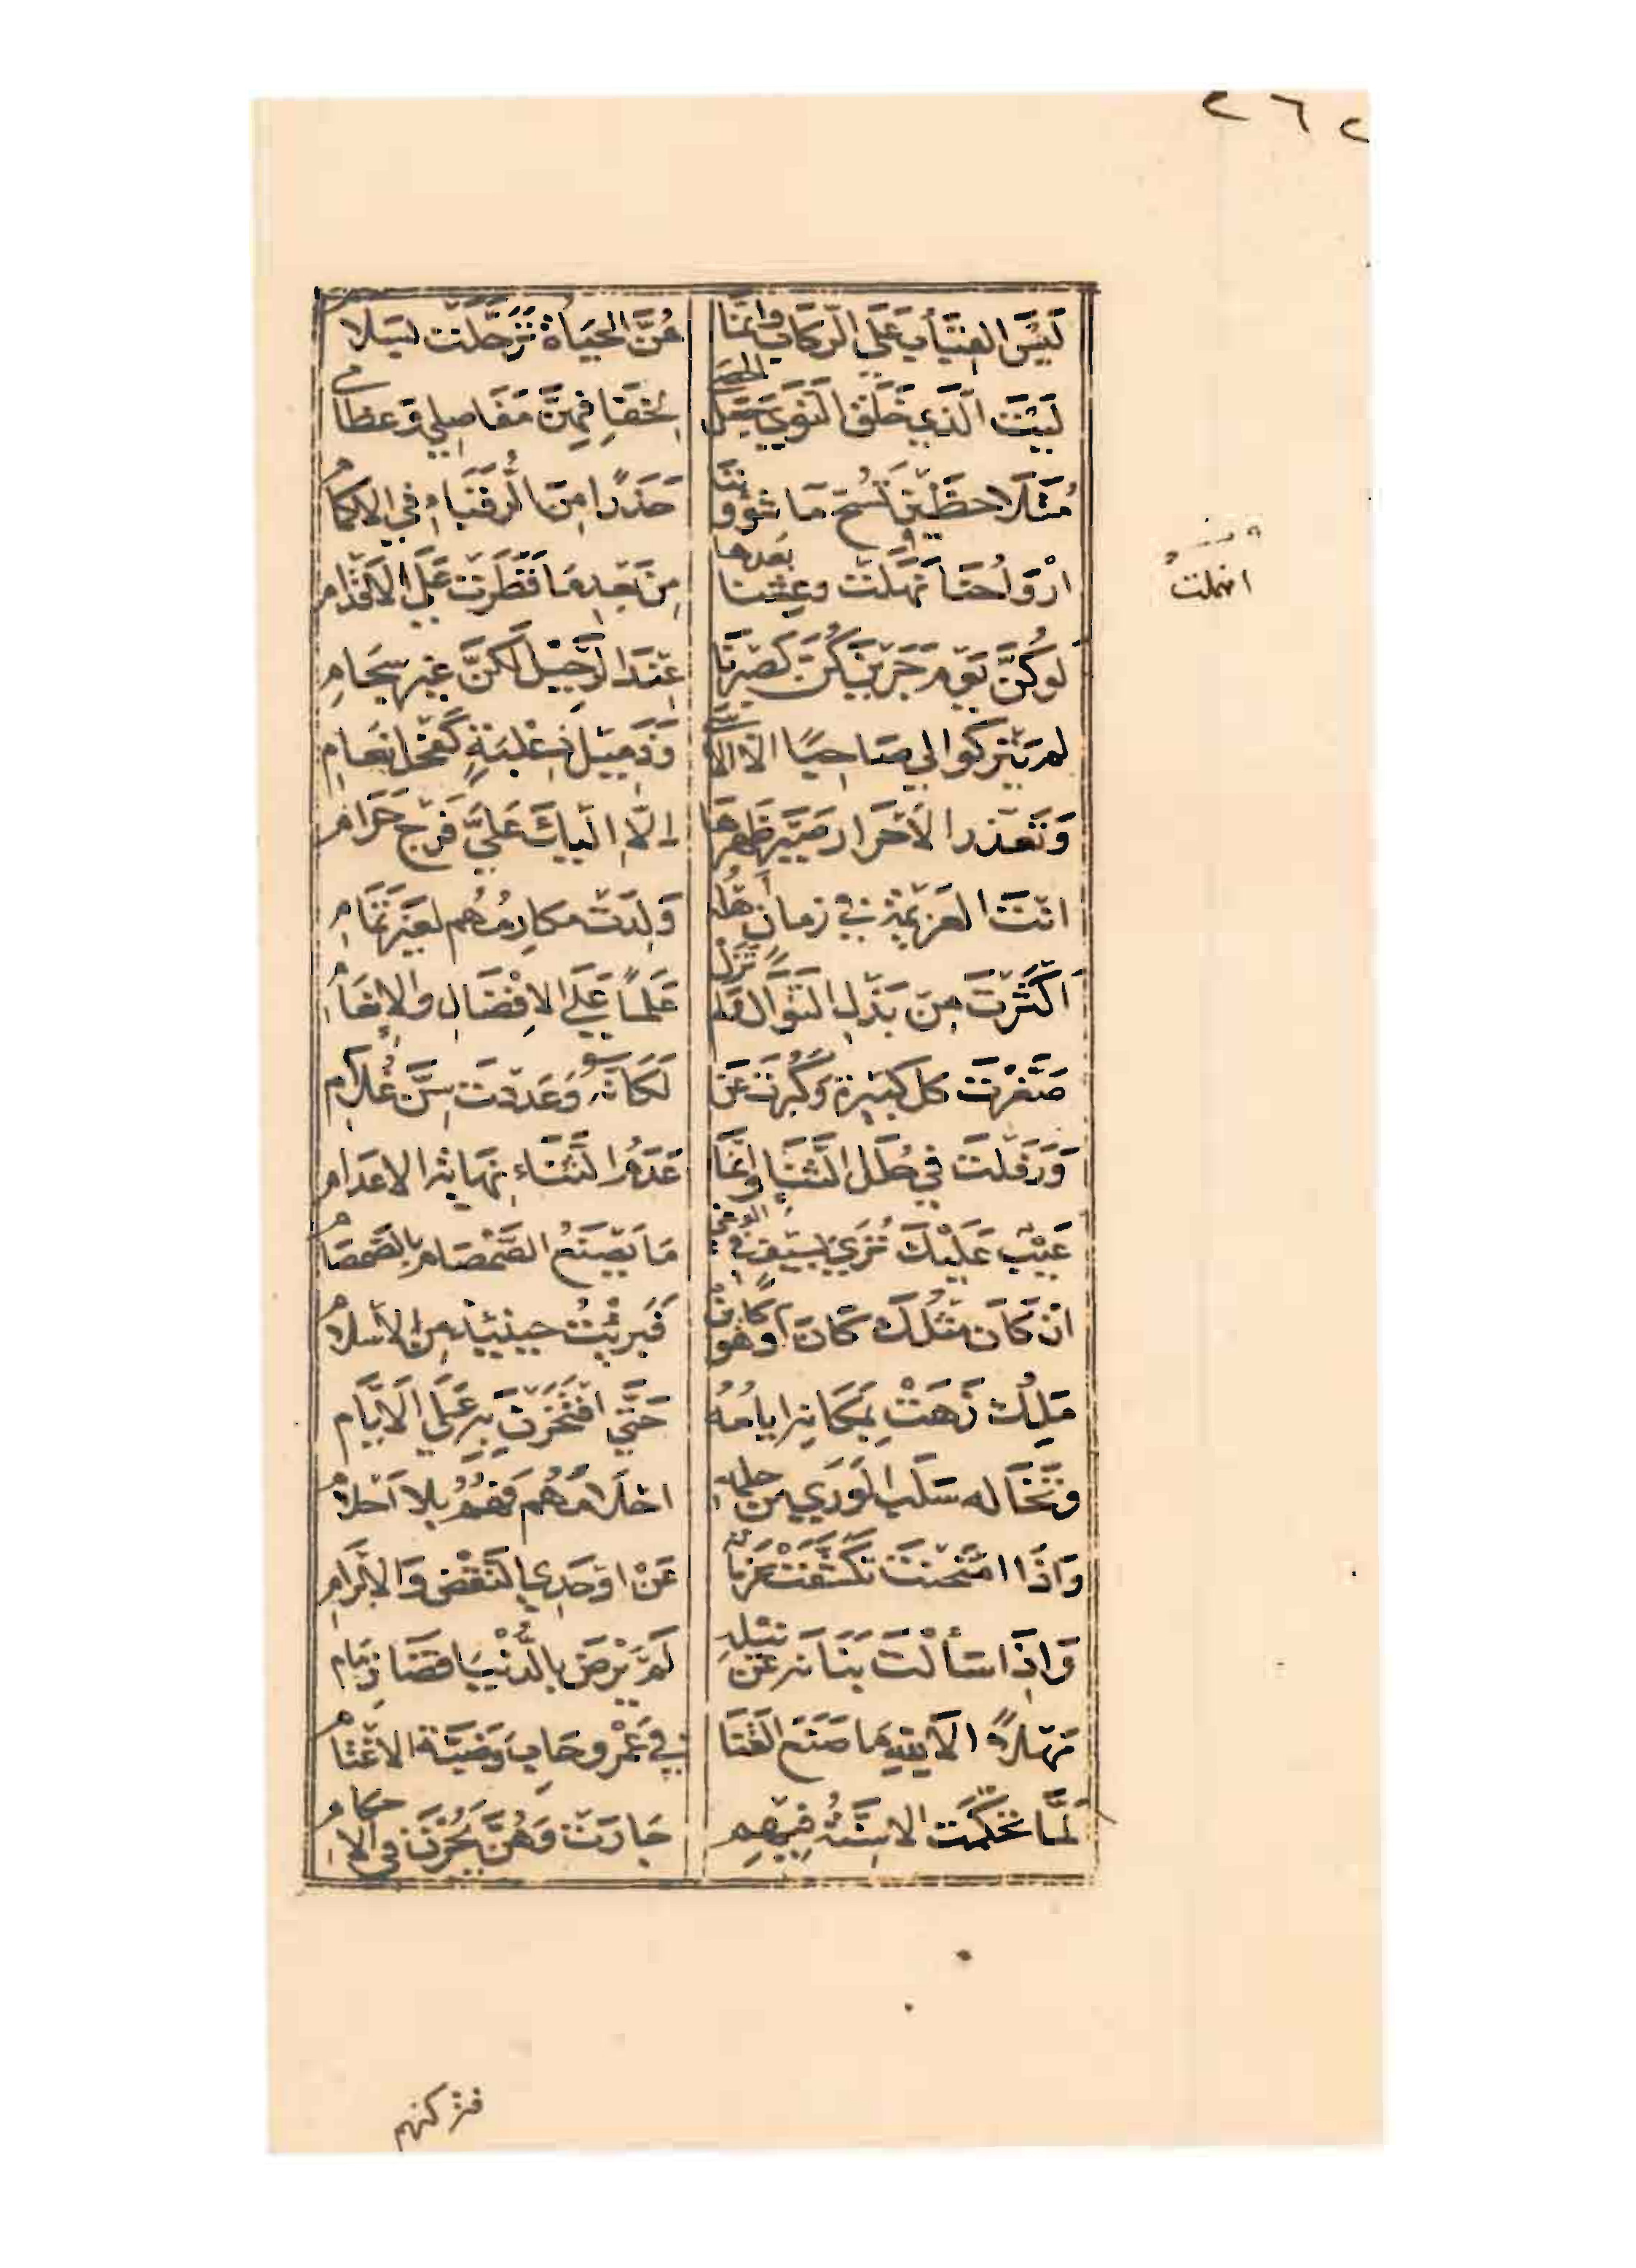 ٢٦٢
لَيْسَ القِبَابُ عَلَى الرِّكَابِ وَإِنَّمَا هُنَّ الحَيَاةُ تَرَحَّلَتْ بسَلَام
لَيْتَ الَّذِي خَلَقَ النَّوَى جَعَلَ الحصى لِخفَافِهِنَّ مَفَاصِلِي وَعظامى
مُتَلَاحِظَيْنِ نَسُحُّ مَا شؤوننا حَذَرًا مِنَ الرُّقَبَاءِ فِي الاكمام
ارْوَاحُنَا انْهَمَلَتْ وعِشنا بَعدها مِن بَعدِ مَا قَطَرَتْ عَلَى الأَقْدَام
لَو كُنَّ يَوْمَ جَرَيْنَ كُنَّ كَصَبْرِنَا عِنْدَ الرَّحِيْلِ لَكُنَّ غَيْرَ سِجَامِ
لم يَتْرُكُوا لي صَاحِبًا الا الاسى وَذَمِيْلَ ذِعْلِبَةٍ كَفَحْلِ نَعَامِ
وَتَعَذُّر الأَحْرَار صَيَّرَ ظَهْرَهَا إِلَّا الَيْكَ عَلَيَّ فَرْجَ حَرَام
انْتَ الغَرِيْبَة في زمان أَهْلُه وُلِدَتْ مكارِمُهُم لغَيْرِ تَمَام
أَكْثَرْتَ مِنْ بَذْلِ النَّوَالِ وَلم تَزَلْ عَلَماً عَلَى الاِفْضَالِ وَالاِنْعَام
صَغَّرْتَ كل كَبِيْرَةٍ وَكَبُرْتَ عَنْ لَكَأَنَّهُ وَعَدَدْتَ سِنَّ غُلَام
وَرَفَلْتَ فِي حُلَلِ الثَّنَا وَإِنَّمَا عَدَمُ الثَّنَاءِ نِهَايَةُ الاعدَام
عَيْبٌ عَلَيْكَ تُرَى بسَيْفٍ في الوغى مَا يَصْنَعُ الصَّمْصَام بِالصَّمْصَام
انْ كَانَ مثلُكَ كَانَ أو هُو كَائِن فَبَرِئْتُ حِينَئِذٍ مِنَ الاسلام
مَلِكٌ زَهَتْ بِمَكَانِهِ ايامُهُ حَتَّى افْتَخَرْنَ بِهِ عَلَى الأَيَّام
وَتَخَالُه سَلَبَ الوَرَى من حلمه احْلَامَهُم فَهُمُ بِلا أَحْلَام
وَاذَا امْتَحَنْتَ تَكَشَّفَتْ عَزَمَاتُه عَنْ اوْحَدِي النَّقْضِ وَالاِبْرَام
وَاذَا سَأَلْتَ بَنَانَه عَنْ نَيْلِهِ لَمْ يَرْضَ بِالدُّنْيَا قَضَا ذِمَام
مَهْلًا الا للهِ مَا صَنَعَ القَنَا فِي عَمْرو حَاب وَضَبَّة الاغْتَام
لَمَّا تَحَكَّمَت الاسِنَّةُ فِيْهِمِ جَارَتْ وَهُنَّ يَجُرْنَ فِي الاحكام
انهملت
فتركتهم